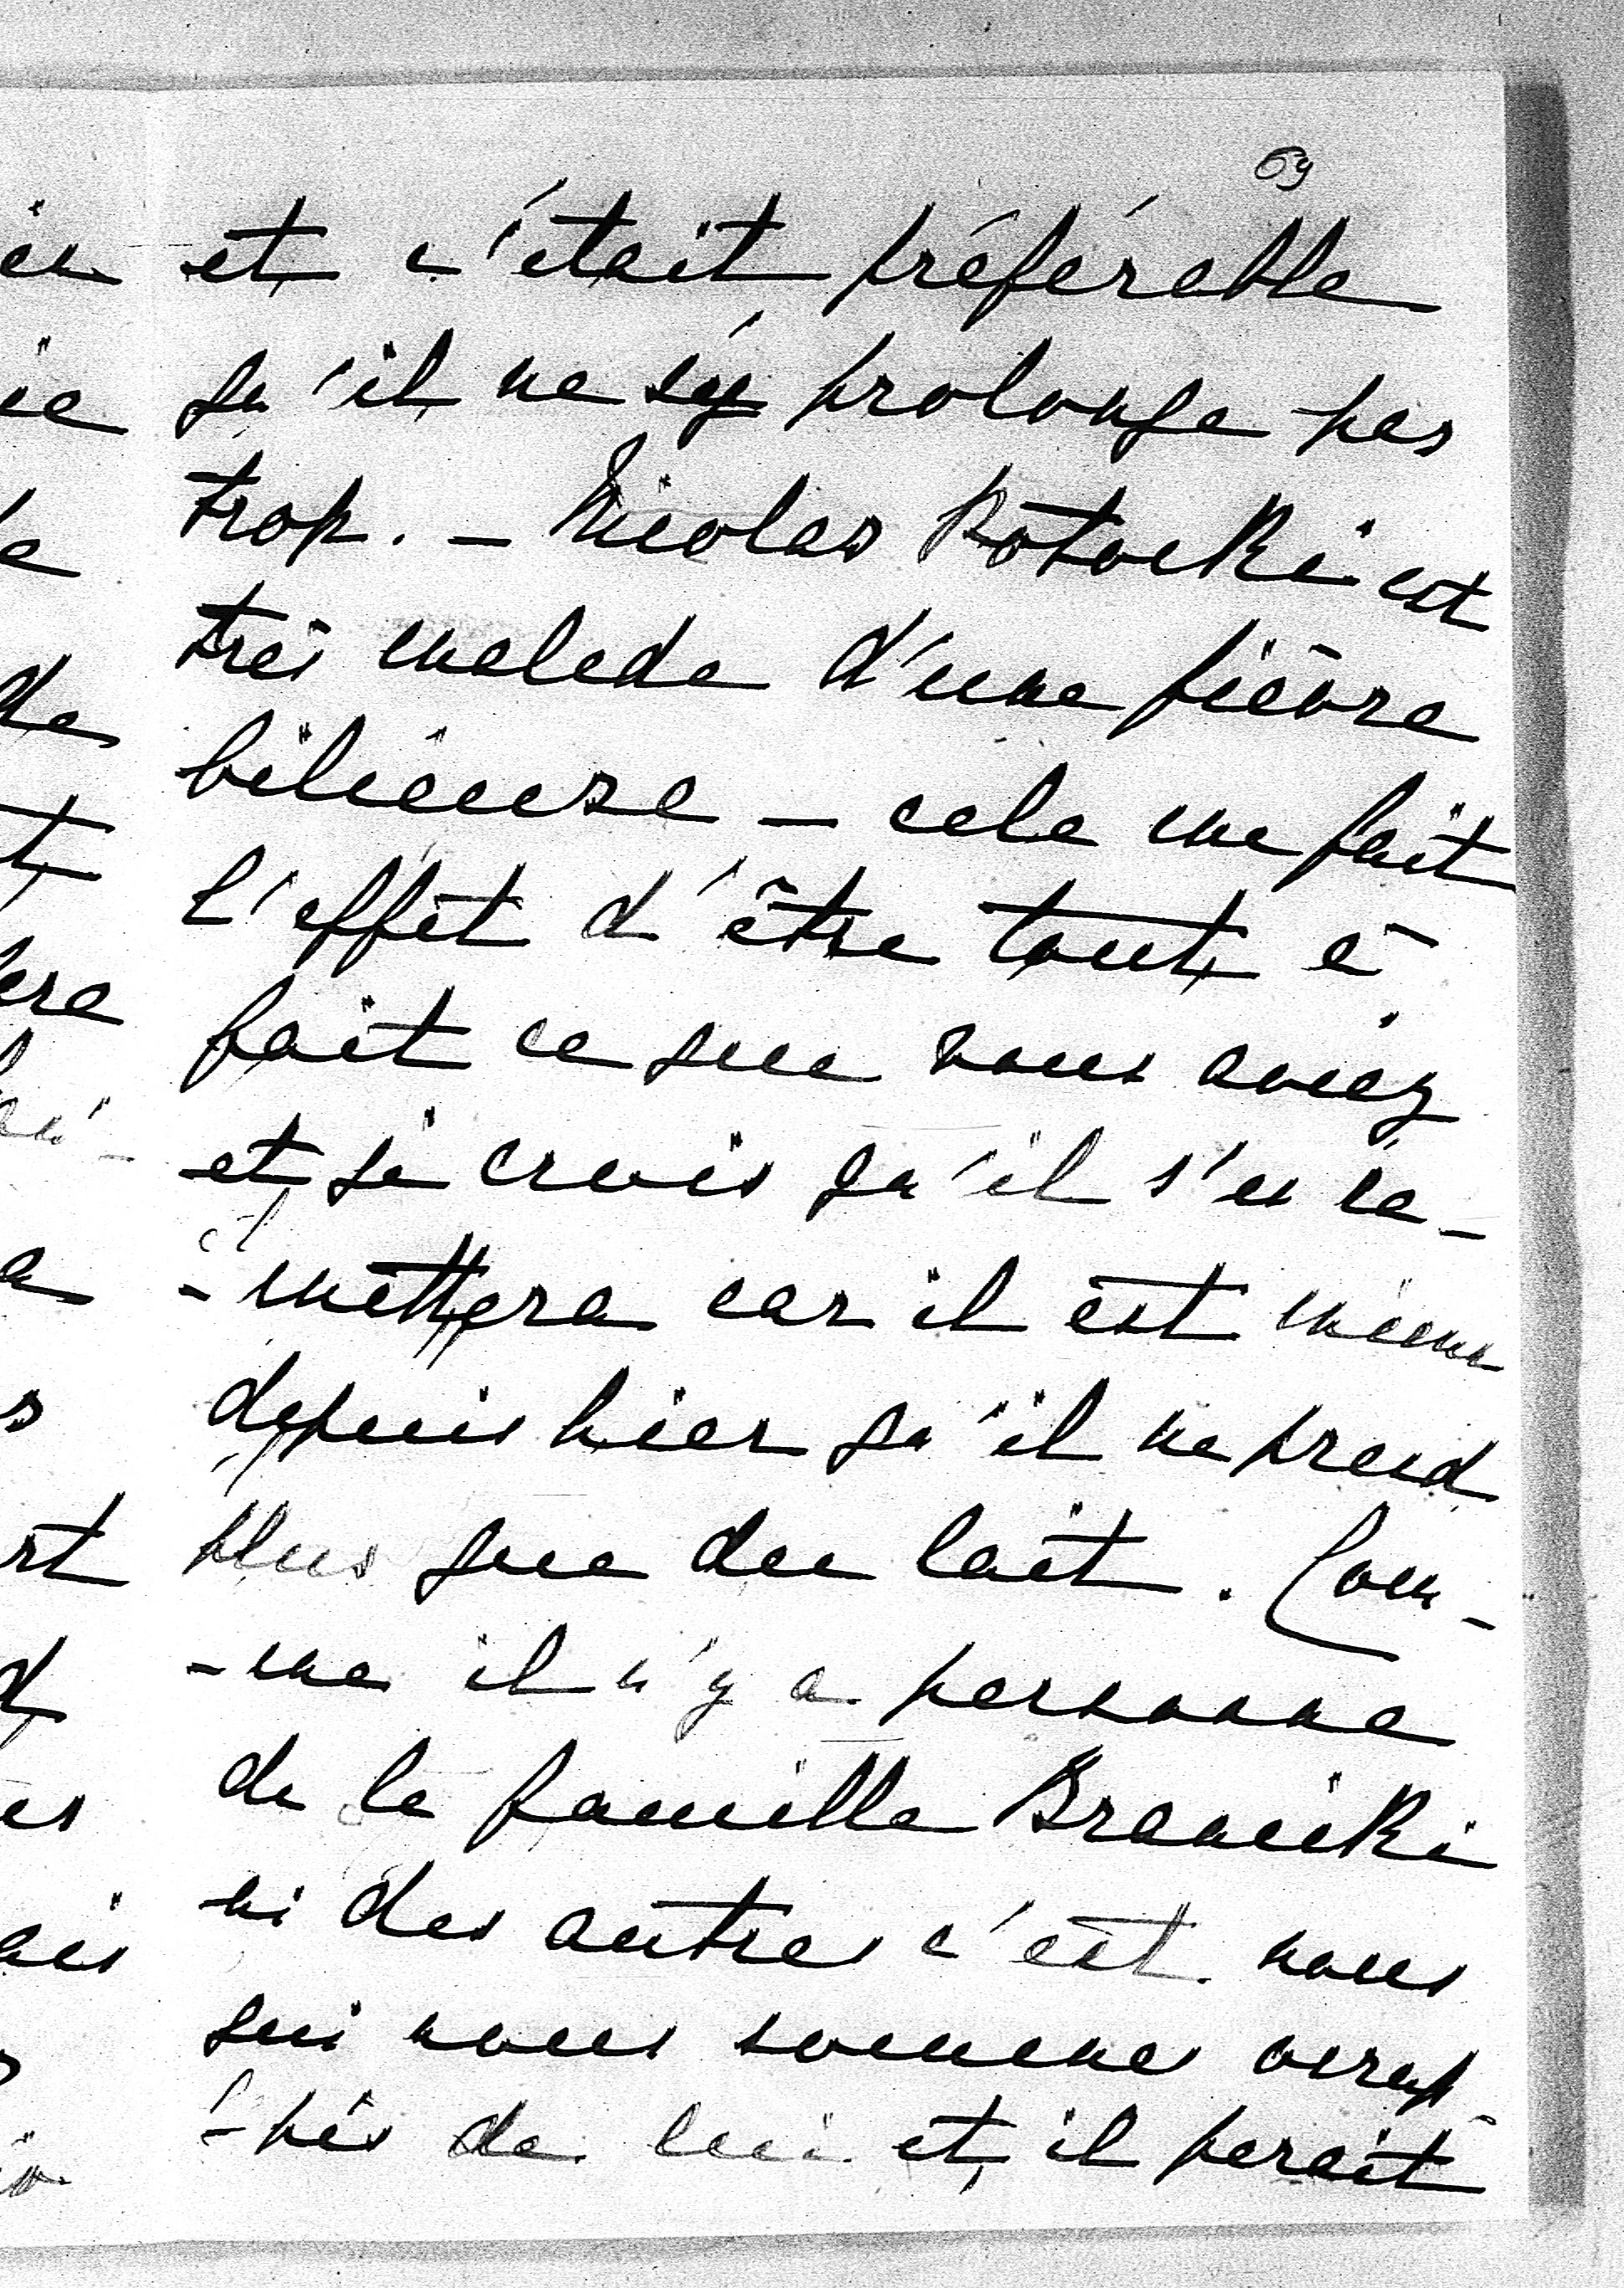 69
et c'était préférable
qu'il ne s'y prolonge pas
trop. - Nicolas Potocki est
très malade d'une fièvre
bilieuse - cela me fait
l'effet d'être tout à
fait ce que vous aviez
et je crois qu'il s'en re-
-mettera car il est mieux
depuis hier qu'il ne prend
plus que du lait. Com-
-me il n'y a personne
de la famille Branicki
ni des autres c'est nous
qui nous sommes occup-
-pés de lui et il parait